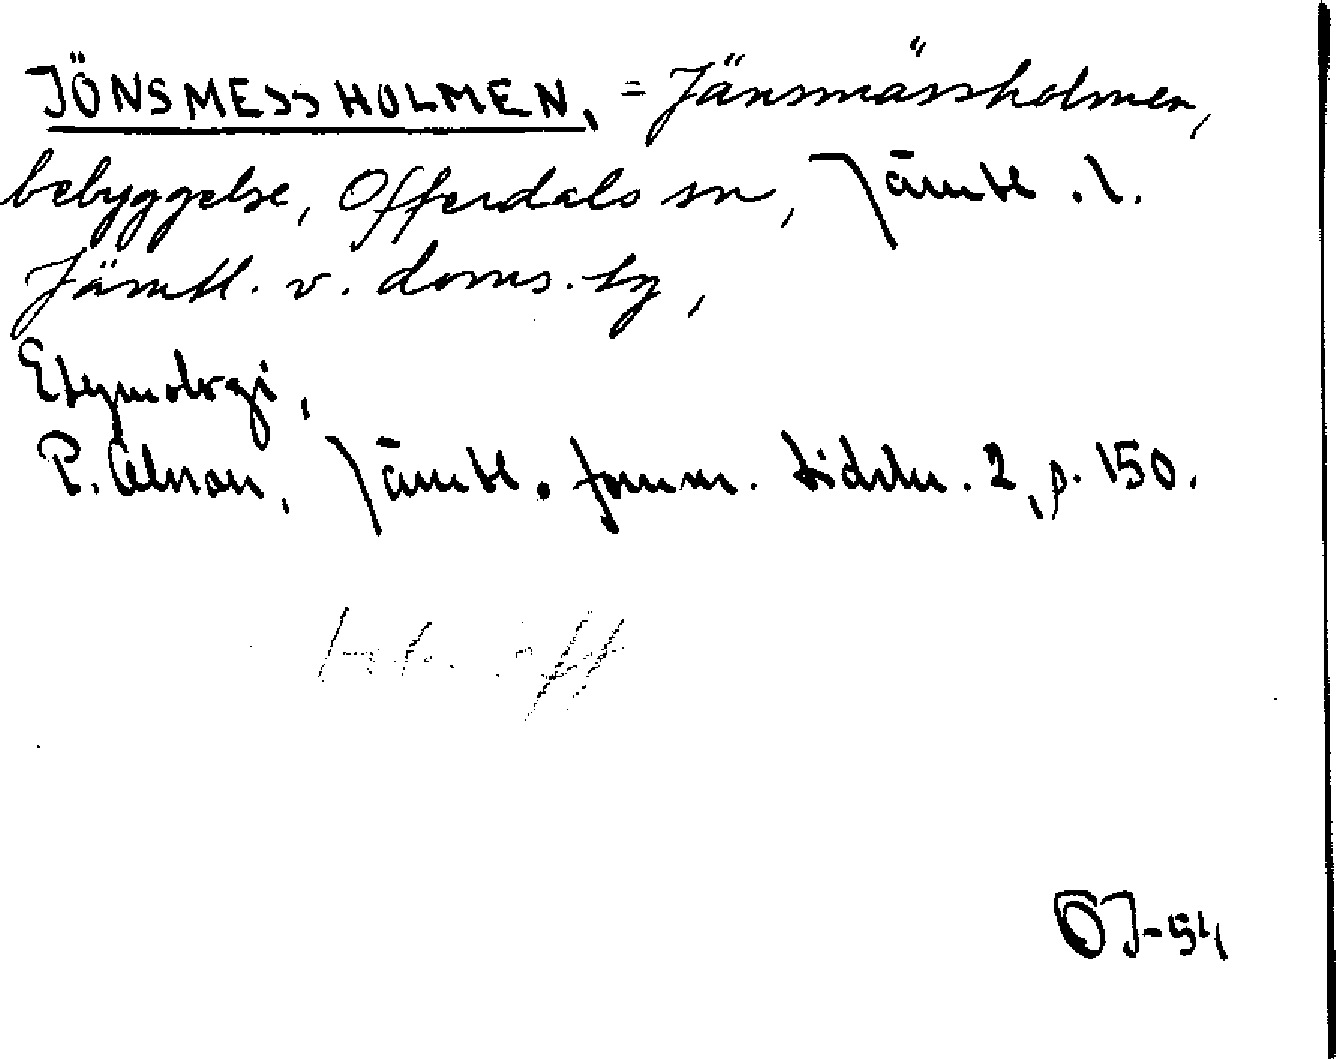 JÖNSMESSHOLMEN, = Jänsmässholmen,
bebyggelse, Offerdals sn, Jämtl. l.
Jämtl. v. doms. tg,
Etymologi,
P. Olsson, Jämtl. fornm. tidskr. 2, p. 150.
OJ-54